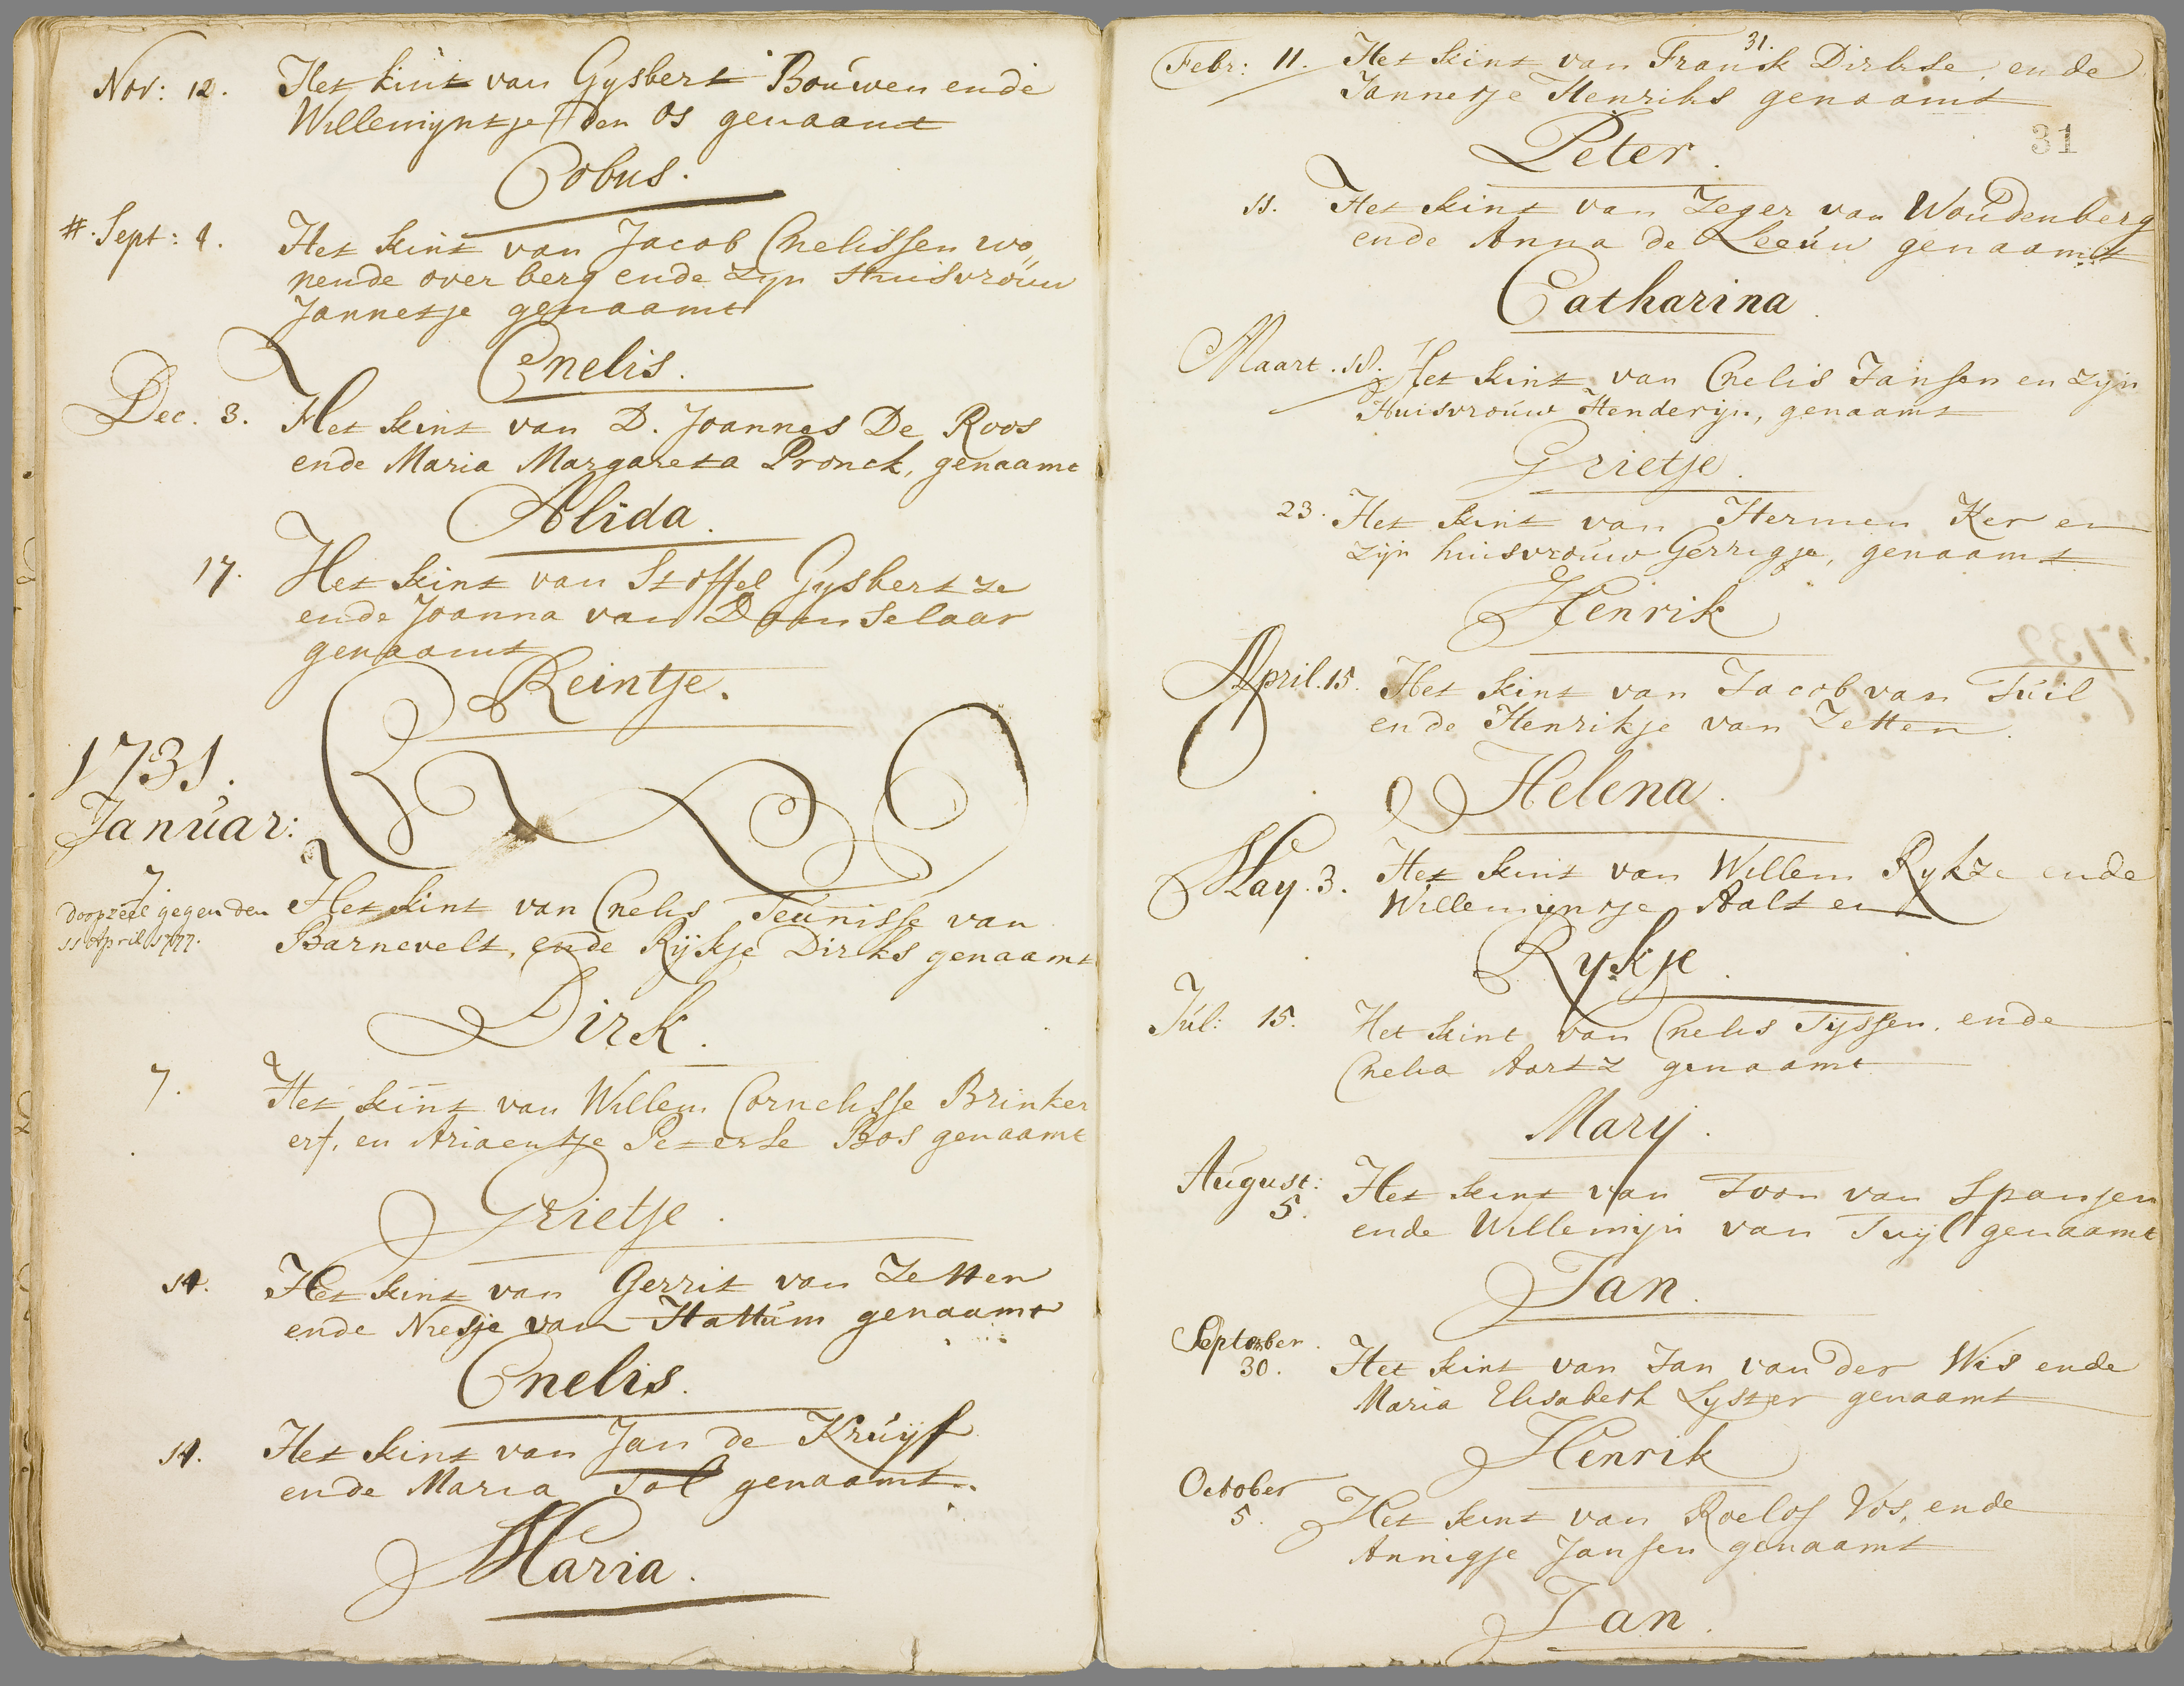 Nov: 12. Het kint van Gysbert Bouwen ende
Willemyntje den Os genaamt
Cobus.
#. Sept: 4. Het kint van Jacob Cnelissen wo„
nende over berg ende zyn Huisvrouw
Jannetje genaamt
Cnelis.
Dec. 3. Het kint van D. Joannes De Roos
ende Maria Margareta Pronck, genaamt
Alida.
17. Het kint van Stoffel Gysbertze
ende Joanna van Daanselaar
genaamt
Reintje.
1731.
Januar:
7. Het kint van Cnelis Teunisse van
doopzeel gegeven den
11 April 1777.
Barnevelt, ende Rijkje Dirks genaamt
Dirk.
7. Het kint van Willem Cornelisse Brinker
erf, en Ariaentje Peterse Bos genaamt
Grietje.
14. Het kint van Gerrit van Zetten
ende Niesje van Hattum genaamt
Cnelis.
14. Het kint van Jan de Kruijf
ende Maria Tol genaamt.
Maria.
31.
Febr: 11. Het kint van Franck Dirkse, ende
Jannetje Henriks genaamt
31
Peter.
11. Het kint van Zeger van Woudenberg
ende Anna de Leeuw genaamt
Catharina.
Maart. 18. Het kint van Cnelis Jansen en zijn
Huisvrouw Henderijn, genaamt
Grietje.
23. Het kint van Hermen Ker en
zijn huisvrouw Gerrigje, genaamt
Henrik
April. 15. Het kint van Jacob van Tuil
ende Henrikje van Zetten.
Helena.
May. 3. Het kint van Willem Rykze ende
Willemijntje Aalten
Rykje.
Jul: 15. Het kint van Cnelis Tijssen, ende
Cnelia Aartz genaamt
Marij.
August: Het kint van Toon van Spanjen
5.
ende Willemijn van Tuijl genaamt
Jan.
September.
30. Het kint van Jan van der Wis ende
Maria Elisabeth Lyster genaamt
Henrik
October
5. Het kint van Roelof Vos, ende
Annigje Jansen genaamt
Jan.